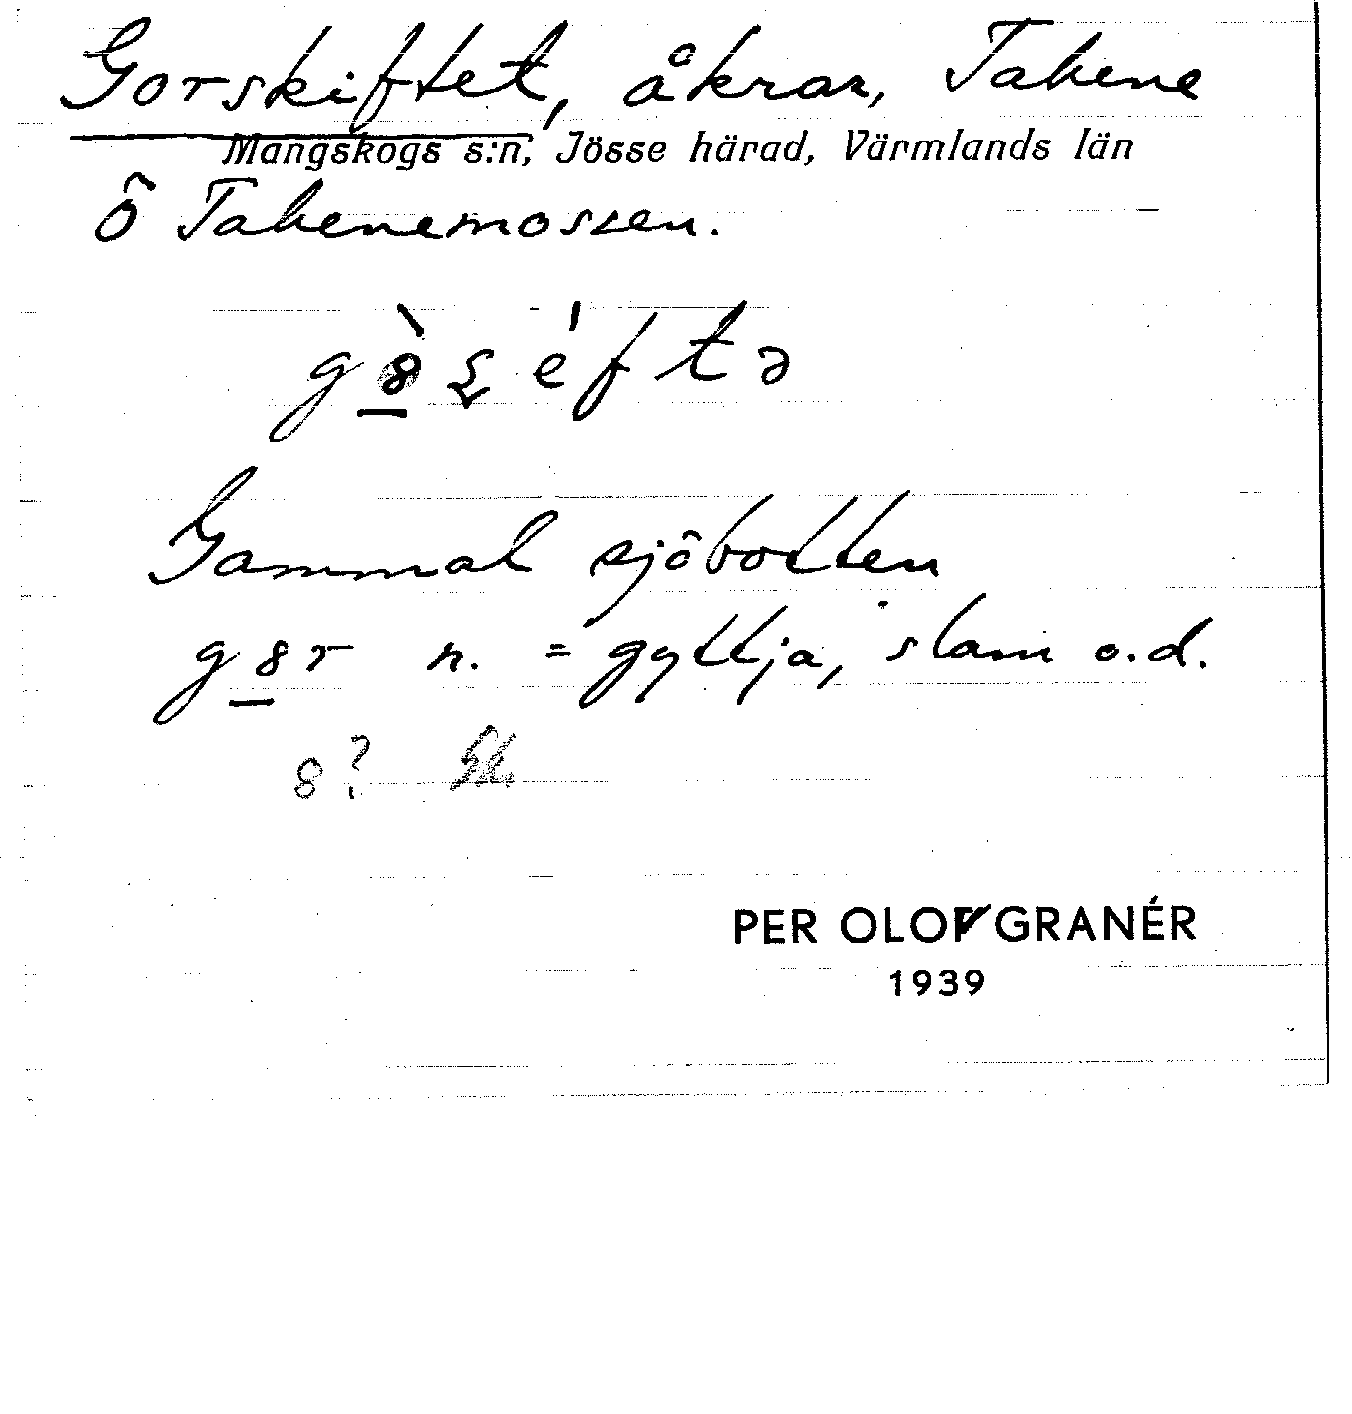 Gorskiftet, åkrar, Tabene
Mangskogs s:n, Jösse härad, Värmlands län
Ö Tabenemossen.
Gammal sjöbotten
g8r n. = gyttja, slam o.d.
8?
PER OLOF GRANÉR
1939